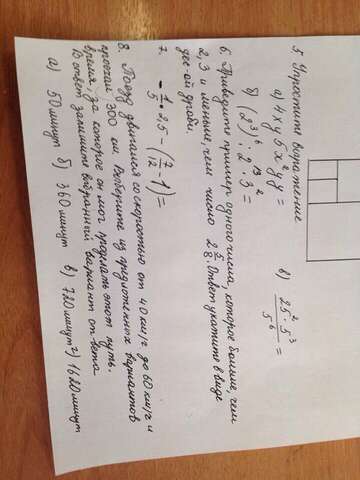 5 Упростите выражение
а) 4xy5x²yy= в) 25²·5³/5⁶=
б) (2³)⁶:2¹³·3²=
6. Приведите пример одного числа, которое больше, чем
2,3 и меньше, чем число 2 5/8. Ответ укажите в виде
дес-ой дроби.
7. -1/5·2,5-(7/12-1)=
8. Поезд двигался со скоростью от 40 км/ч до 60 км/ч и
проехал 300 км. Выберите из предложенных вариантов
время, за которое он мог проделать этот путь.
В ответ запишите выбранный вариант ответа
а) 50 минут б) 360 минут в) 720 минут г) 1620 минут